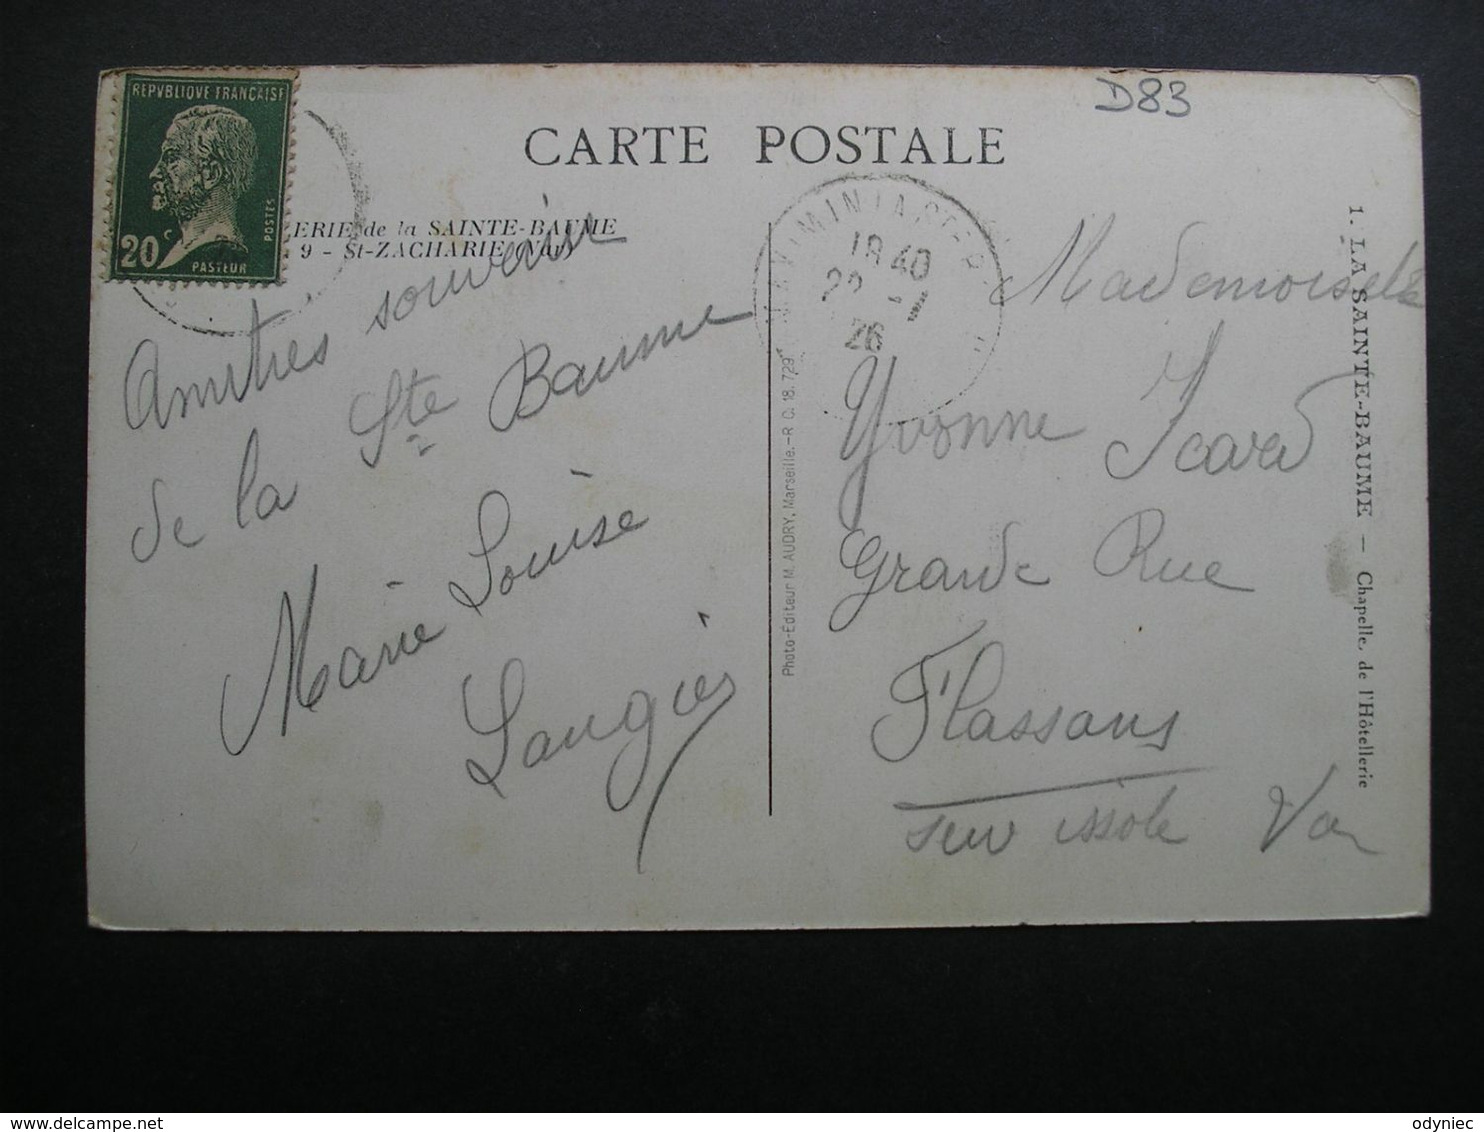 REPVBLIQUE FRANCAISE
20c
POSTES
PASTEUR
D83
CARTE POSTALE
ERIE de la SAINTE-BAUME
9 - St-ZACHARIE (Var)
18 40
26
Amitiés souvenir
de la Ste Baume
Marie Louise
Laugier
Photo-Editeur M. AUDRY, Marseille.-R. C. 18.729
Mademoiselle
Yvonne Icard
Grande Rue
Flassans
sur issole Var
1. LA SAINTE-BAUME — Chapelle de l'Hôtellerie
odyniec
delcampe.net